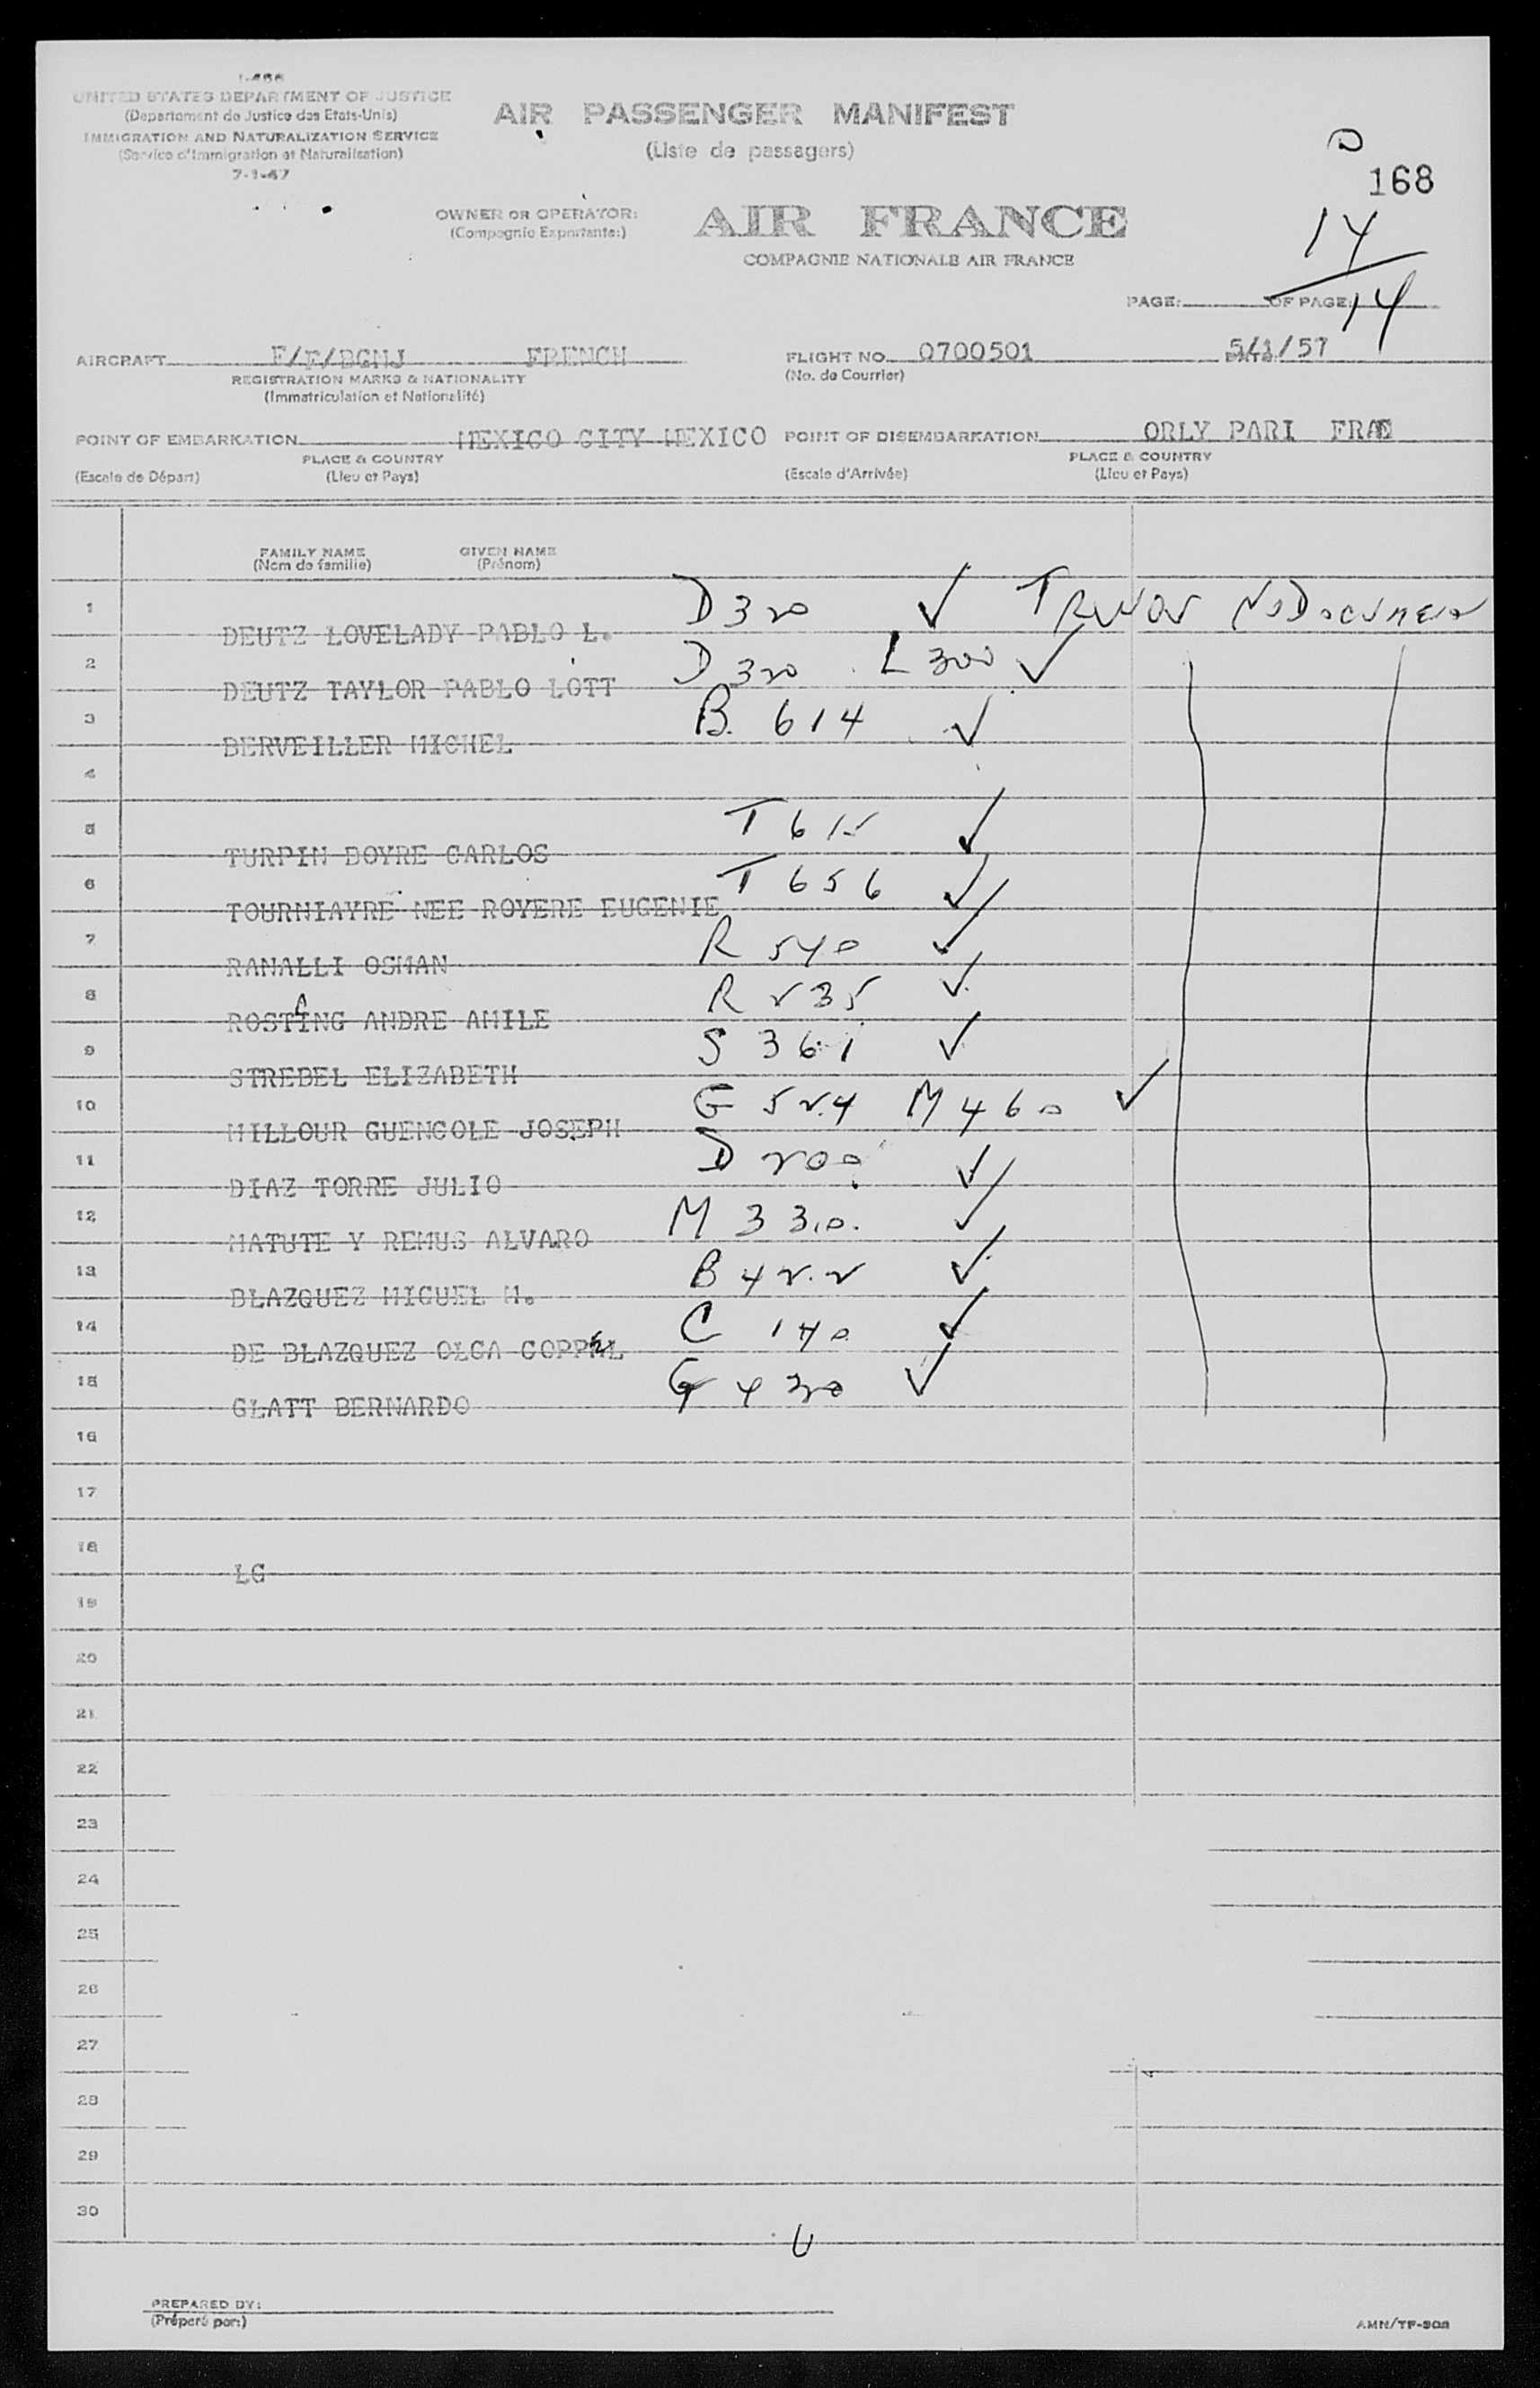 I-466
UNITED STATES DEPARTMENT OF JUSTICE
(Departement de Justice des Etats-Unis)
IMMIGRATION AND NATURALIZATION SERVICE
(Service d'Immigration et Naturalisation)
7-1-47
AIR PASSENGER MANIFEST
(Liste de passagers)
168
OWNER OR OPERATOR: AIR FRANCE
(Compagnie Exportante:)
COMPAGNIE NATIONALE AIR FRANCE
14
PAGE: OF PAGE: 14
AIRCRAFT F/F/BGNJ FRENCH FLIGHT NO. 0700501 5/1/57
REGISTRATION MARKS & NATIONALITY (No. de Courrier)
(Immatriculation et Nationalité)
POINT OF EMBARKATION MEXICO CITY MEXICO POINT OF DISEMBARKATION ORLY PARI FRAE
PLACE & COUNTRY PLACE & COUNTRY
(Escale de Départ) (Lieu et Pays) (Escale d'Arrivée) (Lieu et Pays)
FAMILY NAME GIVEN NAME
(Nom de famille) (Prénom)
1 DEUTZ LOVELADY PABLO L. D 320 ✓
2 DEUTZ TAYLOR PABLO LOTT D 320 L 300 ✓
3 BERVEILLER MICHEL B. 614 ✓
4
5 TURPIN DOYRE CARLOS T 615 ✓
6 TOURNIAYRE NEE ROYERE EUGENIE T 656 ✓
7 RANALLI OSMAN R 540 ✓
8 ROSTAING ANDRE AMILE R 235 ✓
9 STREBEL ELIZABETH S 361 ✓
10 MILLOUR GUENCOLE JOSEPH G 524 M 460 ✓
11 DIAZ TORRE JULIO D 200 ✓
12 MATUTE Y REMUS ALVARO M 330 ✓
13 BLAZQUEZ MIGUEL M. B 422 ✓
14 DE BLAZQUEZ OLGA COPPEL C 140 ✓
15 GLATT BERNARDO G 430 ✓
16
17
18 LG
19
20
21
22
23
24
25
26
27
28
29
30
PREPARED BY:
(Préparé par:)
AMN/TF-908